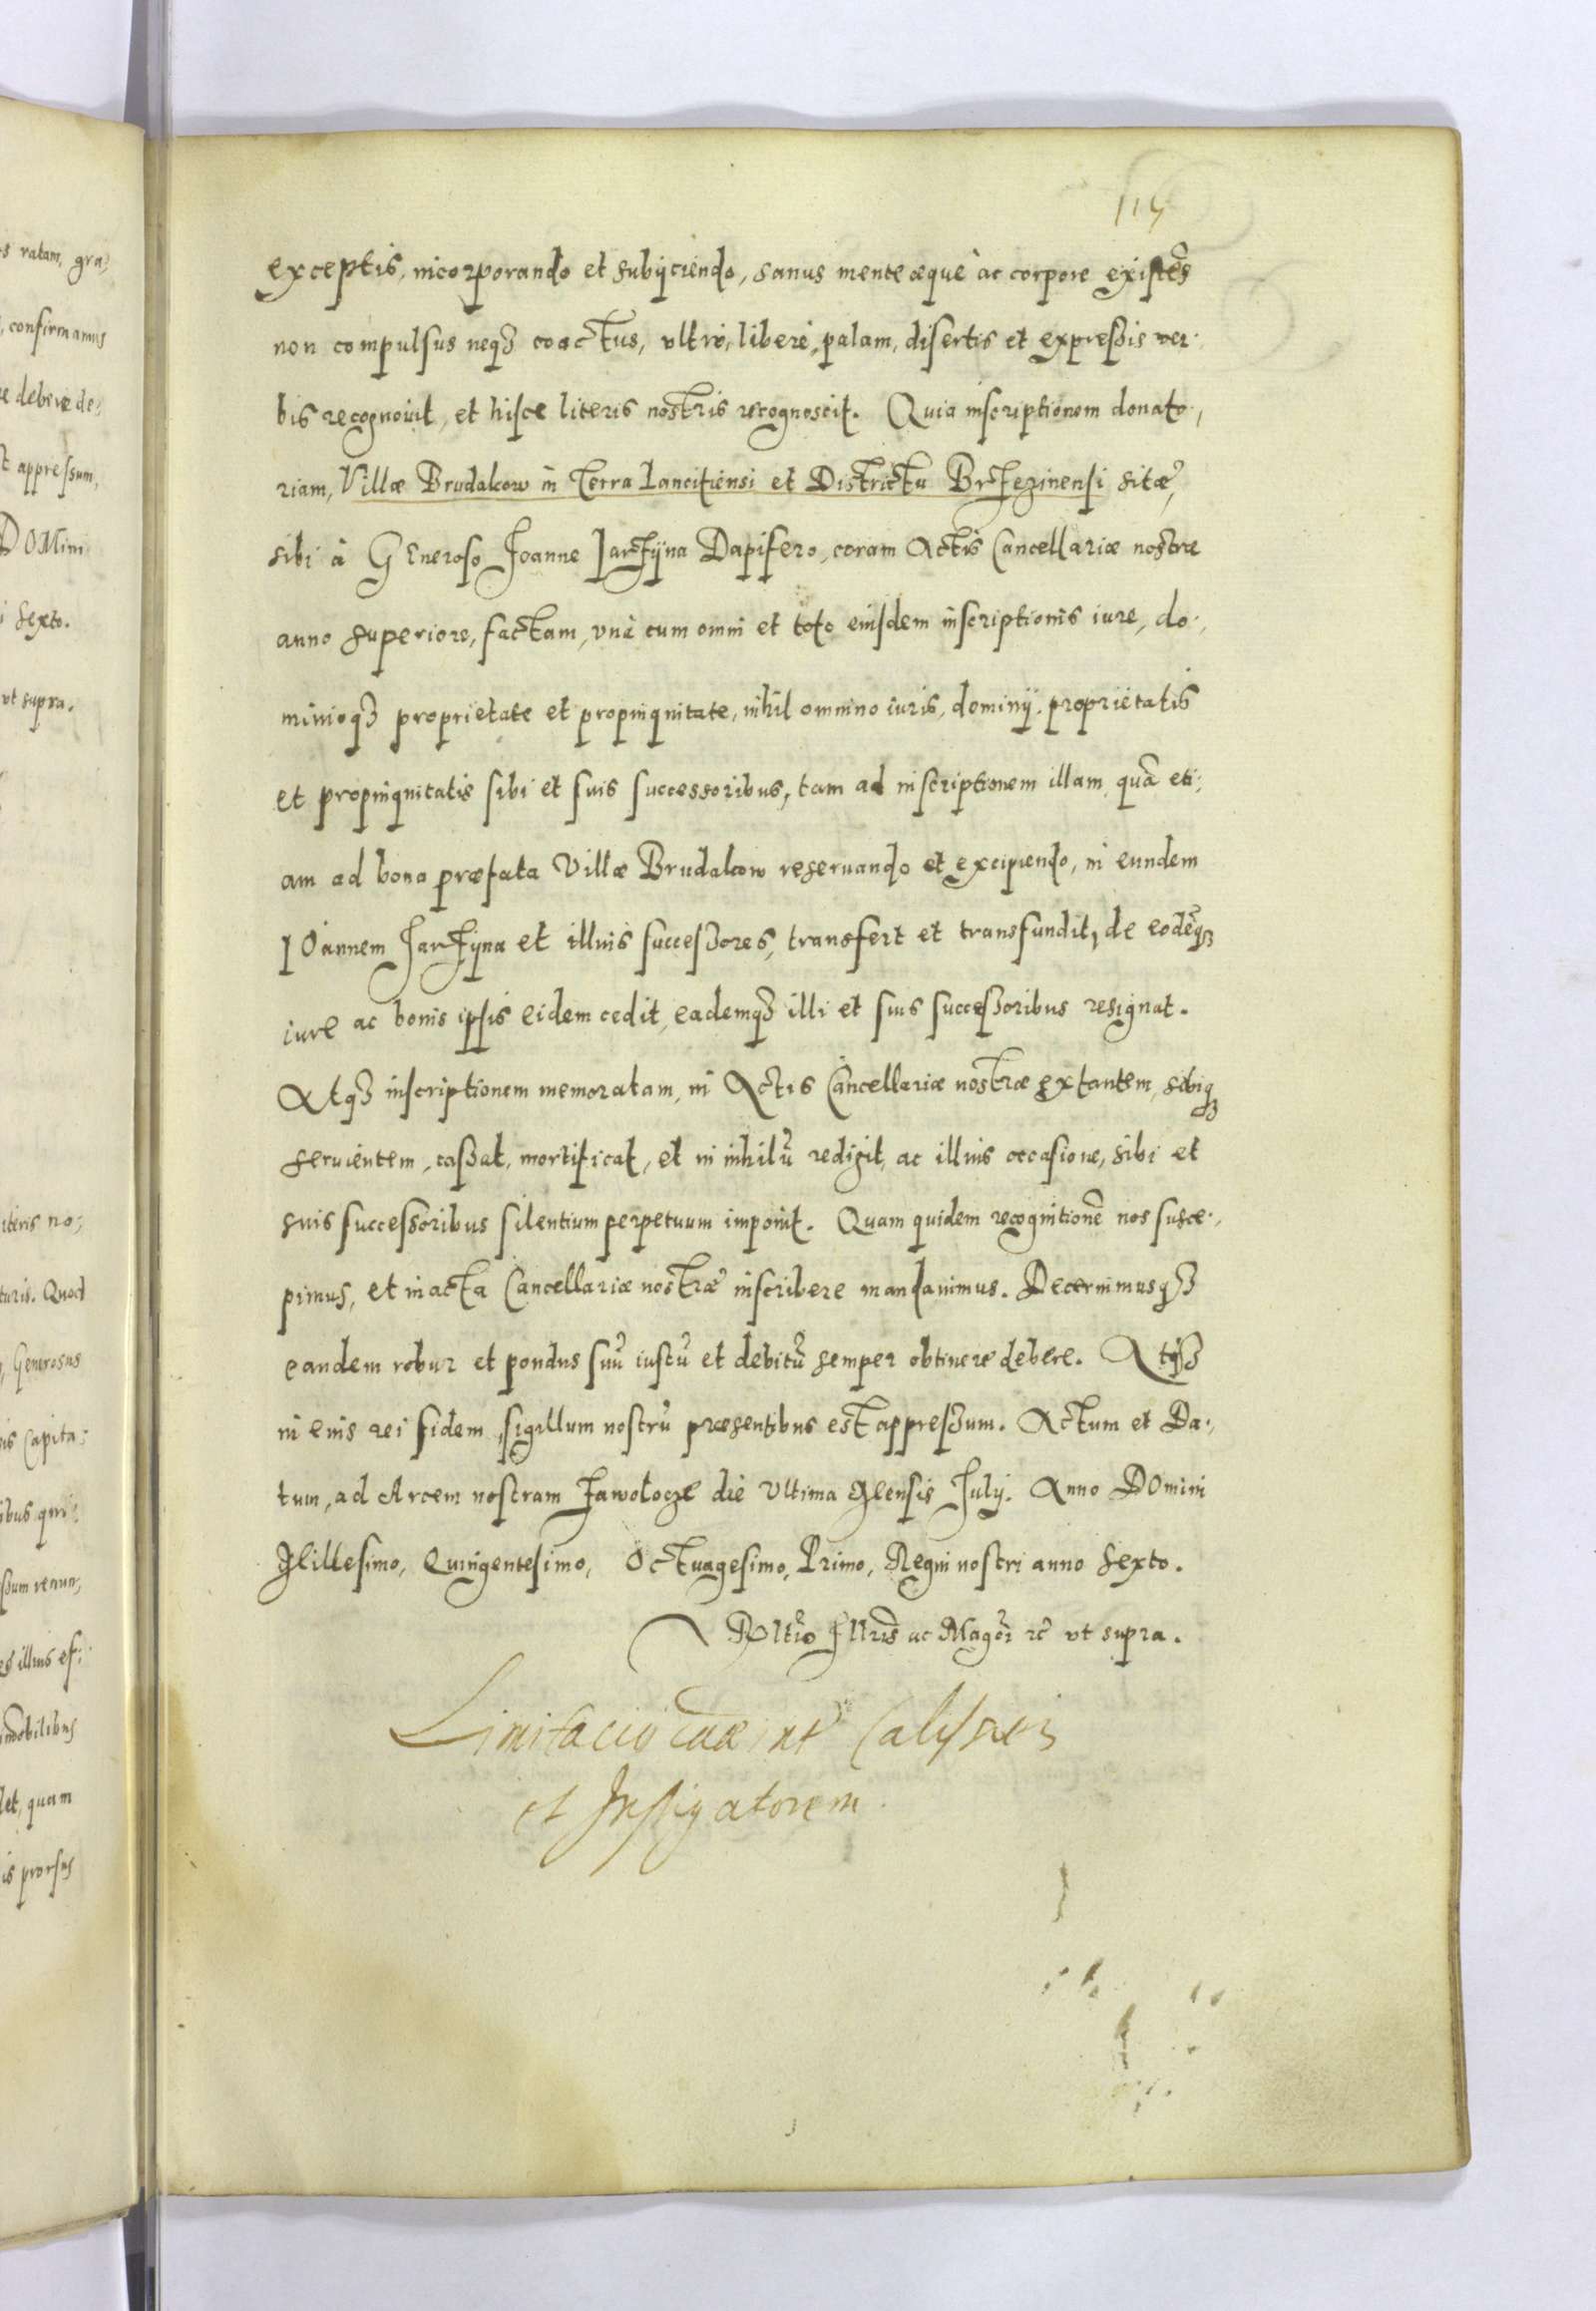 115
exceptis, incorporando et subijciendo, sanus mente æque ac corpore existẽs
non compulsus neqȝ coactus, vltrò, liberè, palam, disertis et expressis ver:
bis recognouit, et hisce literis nostris recognoscit. Quia inscriptionem donato:
riam, Villæ Brudalcow in Terra Lancitiensi et Districtu Brzezinensi sitæ,
sibi à GEneroso Joanne Jarzÿna Dapifero, coram Actis Cancellariæ nostræ
anno superiore, factam, vnà cum omni et toto eiusdem inscriptionis iure, do:
minioqȝ proprietate et propinquitate, nihil omnino iuris, dominij, proprietatis
et propinquitatis sibi et suis successoribus, tam ad inscriptionem illam, quã eti:
am ad bona præfata Villæ Brudalcow reseruando et excipiendo, in eundem
JOannem Jarzÿna et illius successores, transfert et transfundit, de eodẽqȝ
iure ac bonis ipsis eidem cedit, eademqȝ illi et suis successoribus resignat.
Atqȝ inscriptionem memoratam, in Actis Cancellariæ nostræ extantem, sibiqȝ
seruientem, cassat, mortificat, et in nihilũ redigit, ac illius occasione, sibi et
suis successoribus silentium perpetuum imponit. Quam quidem recognitionẽ nos susce:
pimus, et in acta Cancellariæ nostræ inscribere mandauimus. Decernimusqȝ
eandem robur et pondus suũ iustũ et debitũ semper obtinere debere. Atqȝ
in euis rei fidem, sigillum nostrũ præsentibus est appressum. Actum et Da:
tum, ad Arcem nostram Zawolocze die Vltima Mensis Julij. Anno DOmini
Millesimo, Quingentesimo, Octuagesimo, Primo, Regni nostri anno Sexto.
Rltĩo Jllris ac Magci ꝛc̃ vt supra.
Limitacio cãe int Calÿsken
et Instigatorem.